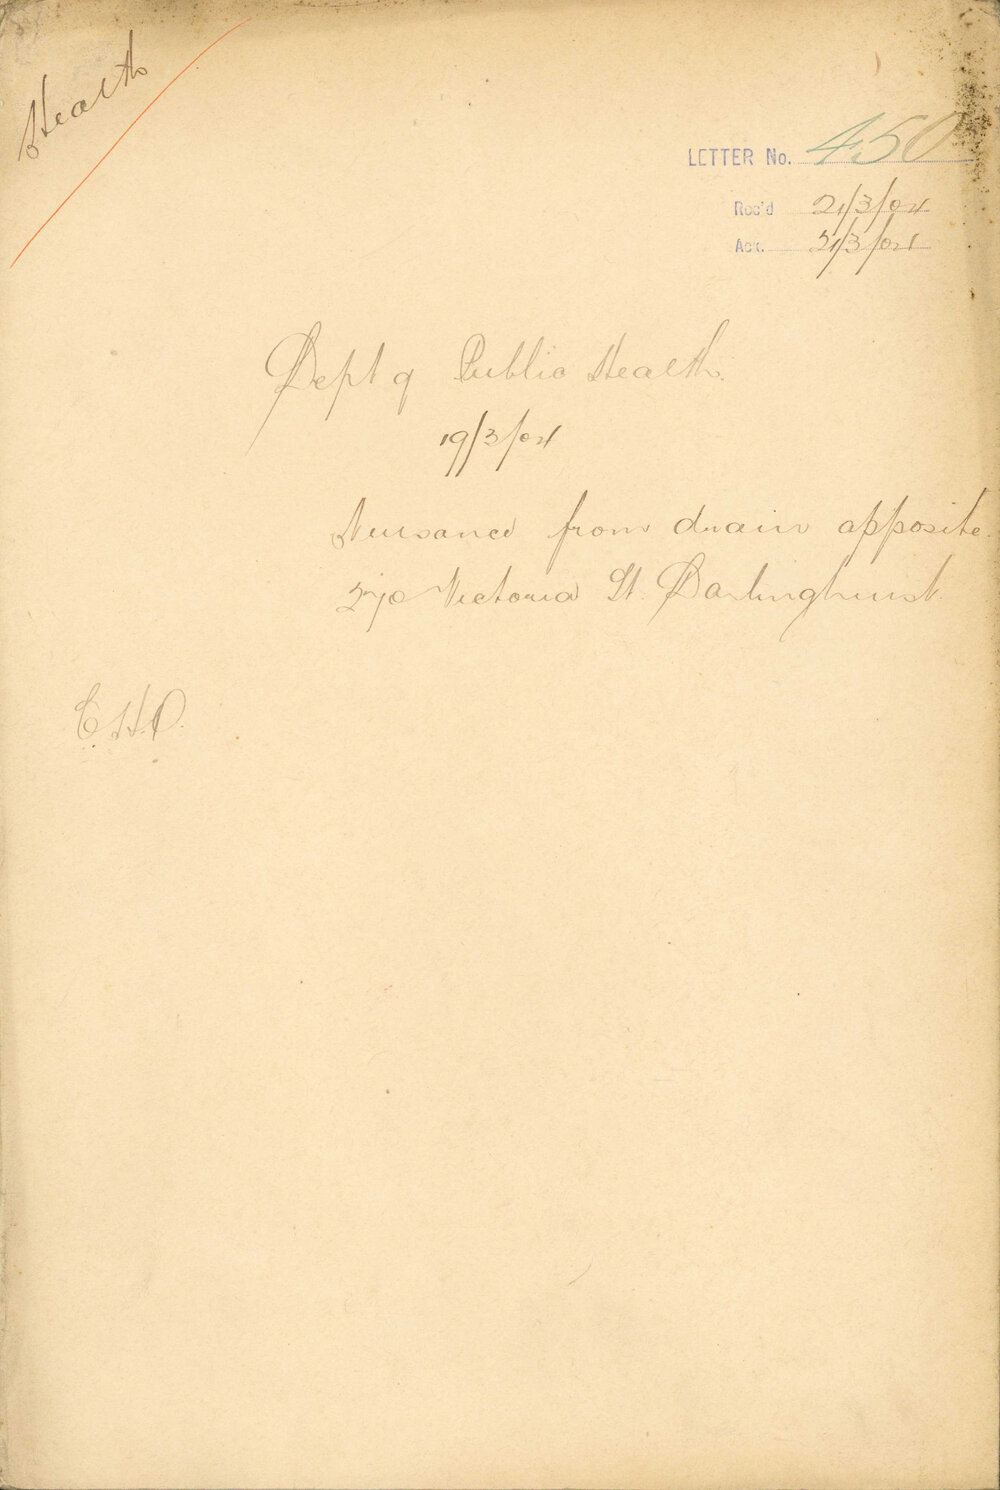 Health
LETTER No. 450
Rec'd 21/3/04
Ack. 21/3/04
Dept of Public Health.
19/3/04
Nuisance from drain opposite
270 Victoria St. Darlinghurst.
C.H.O.